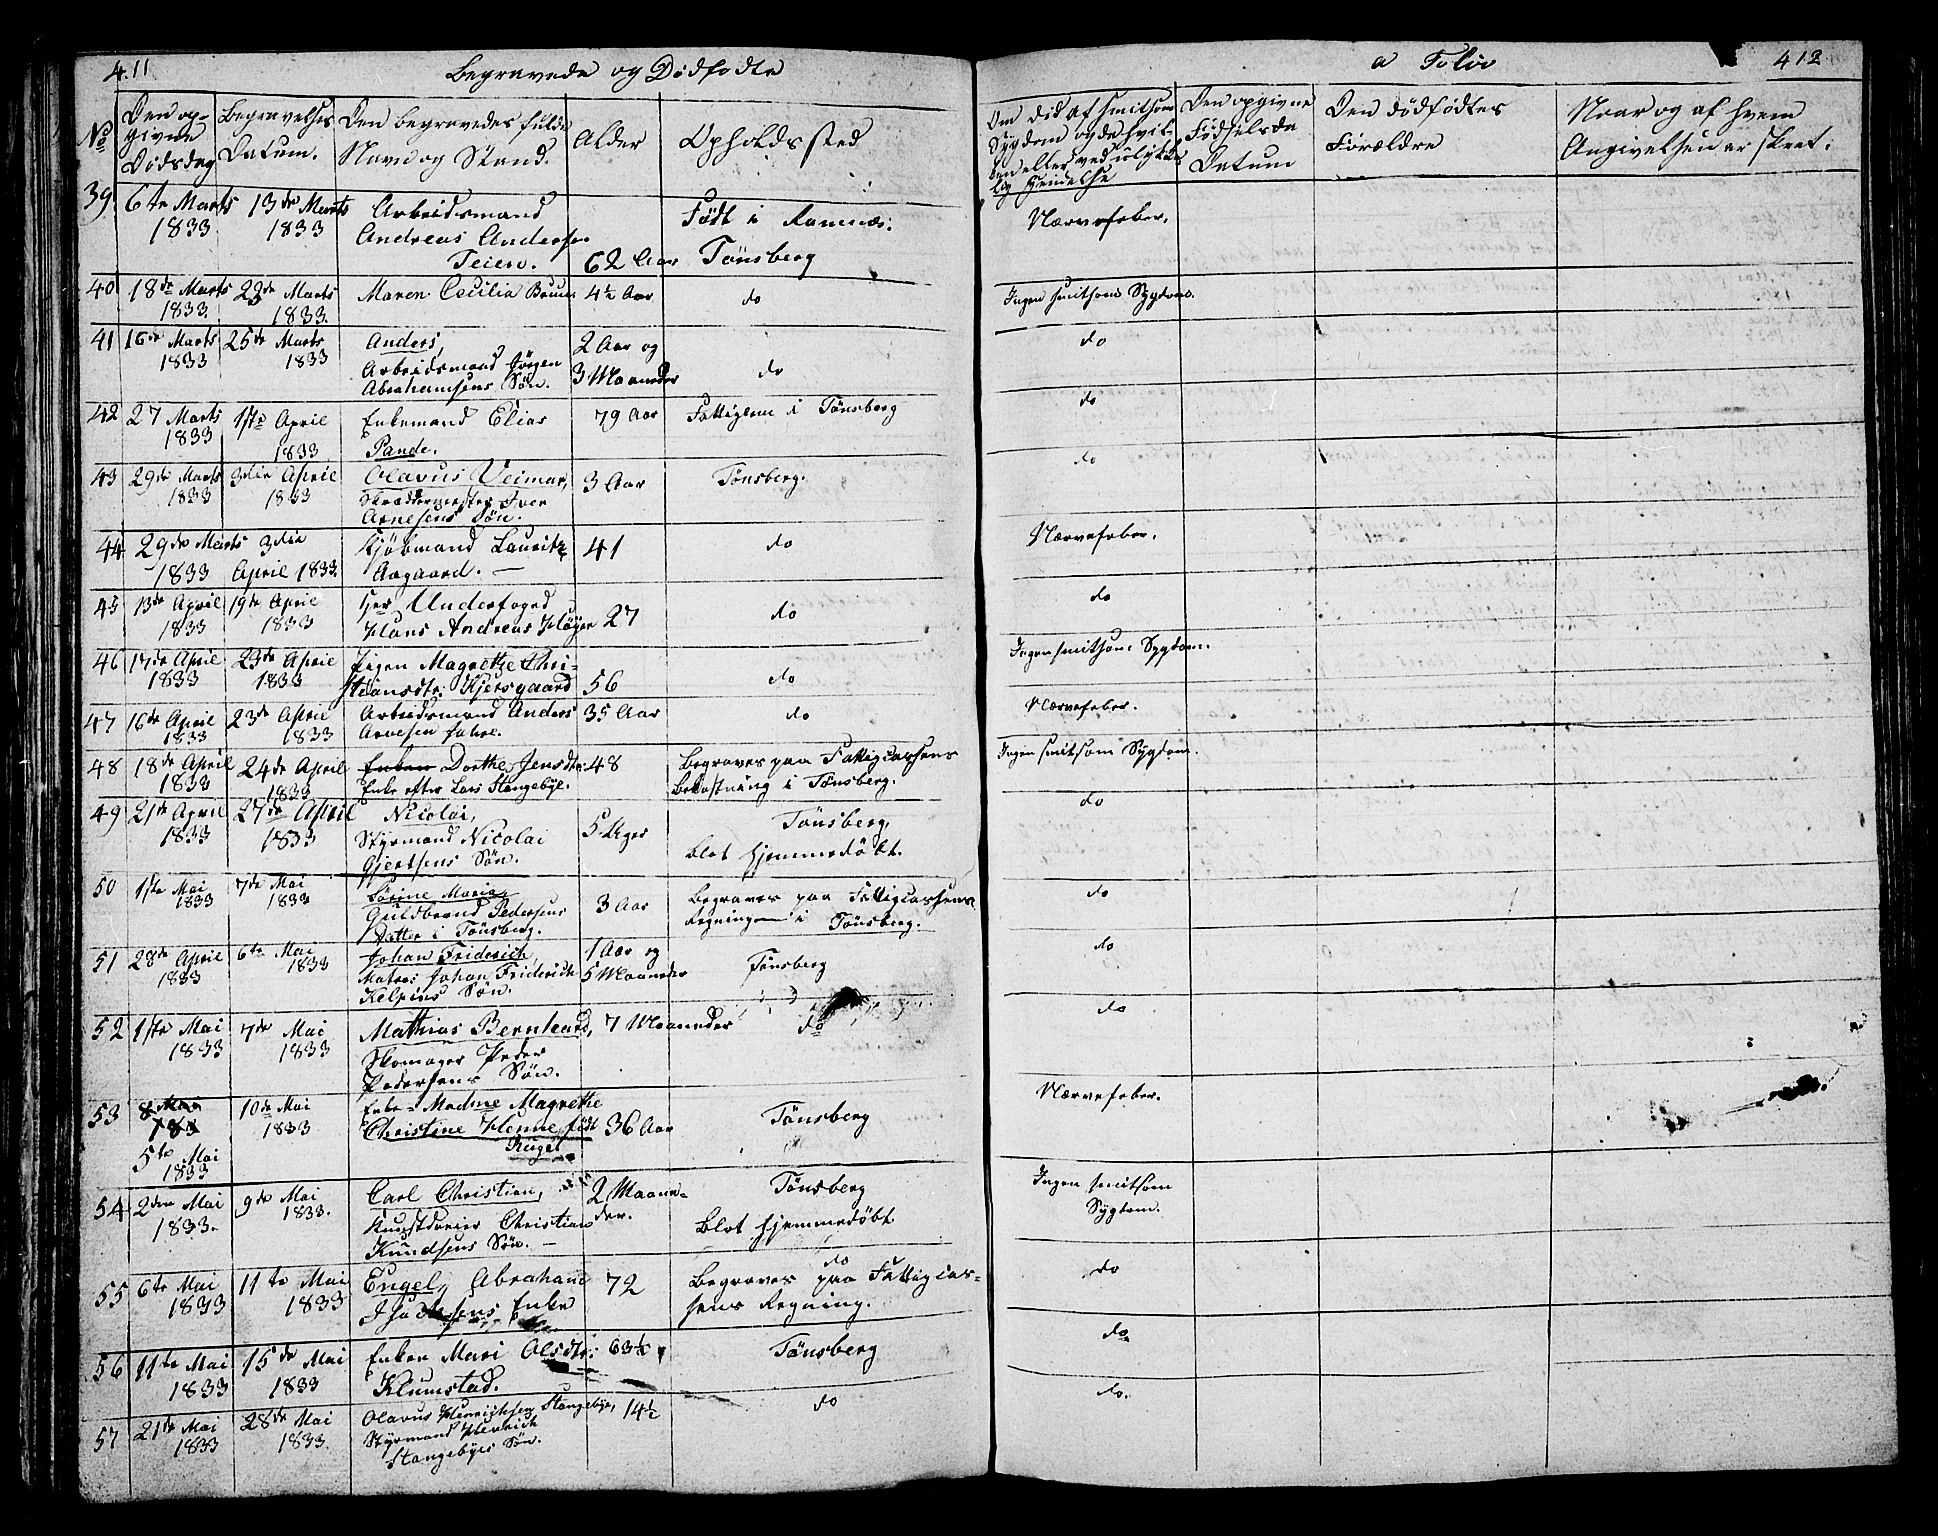 411
Begravede og Dødfødte
No
Den op-
givne
Dødsdag
Begravelses
Datum.
Den begravedes fulde
Navn og Stand.
Alder
Opholdssted
39
6te Marts
1833
13de Marts
1833
Arbeidsmand
Andreas Andersen
Teien.
62 Aar
Født i Ramnæs.
Tönsberg
40
18de Marts
1833.
23de Marts
1833.
Maren Cecilia Bruun
4½ Aar
do
41
16de Marts
1833
25de Marts
1833
Anders,
Arbeidsmand Jörgen
Abrahamsens Søn.
2 Aar og
3 Maaneder
do
42
27 Marts
1833
1ste April
1833
Enkemand Elias
Pande.
79 Aar
Fattiglem i Tönsberg
43
29de Marts
1833
3die April
1833
Olavus Veimar,
Skræddermester Iver
Arnesens Søn.
3 Aar
Tönsberg.
44
29de Marts
1833
3die
April 1833.
Kjöbmand Lauritz
Aagaard. —
41
do
45
13de April
1833
19de April
1833
Hr Underfoged
Hans Andreas Höyer
27
do
46
17de April
1833
23de April
1833
Pigen Magrethe Chri-
stiansdtr: Kjersgaard
56
do
47
16de April
1833
23de April
1833
Arbeidsmand Anders
Arvesen
35 Aar
do
48
18de April
1833
24de April
1833
Enken Dorthe Jensdtr:
Enke efter Lars Stangebye.
48
Begraves paa Fattigcassens
Bekostning i Tönsberg.
49
21de April
1833
27de April
1833
Nicolai,
Styrmand Nicolai
Gjertsens Søn.
5 Uger
Tönsberg,
Blot hjemmedøbt.
50
1ste Mai
1833
7de Mai
1833
Sörine Maria,
Guldbrand Pedersens
Datter i Tönsberg.
3 Aar
Begraves paa Fattigcassens
Regning i Tönsberg.
51
28de April
1833
6te Mai
1833
Johan Friderich,
Matros Johan Friderich
Kelpins Søn.
1 Aar og
5 Maaneder
Tönsberg
52
1ste Mai
1833
7de Mai
1833
Mathias Bernhard,
Skomager Peder
Pedersens Søn.
7 Maaneder
do
53
8 Mai
183
5te Mai
1833
10de Mai
1833
Enke-Madme Magrethe
Christine Henne født
Rüge
36 Aar
Tönsberg
54
2den Mai
1833.
9de Mai
1833.
Carl Christian,
Christian
Knudsens Søn. —
2 Maane-
der.
Tönsberg
Blot hjemmedøbt
55
6te Mai
1833
11te Mai
1833
Engel, Abraham
Enke
72
do
Begraves paa Fattigcas-
sens Regning.
56
11te Mai
1833
15de Mai
1833
Enken Mari Olsdtr:
Klumstad.
63½
Tönsberg
57
21de Mai
1833
28de Mai
1833.
Olavus Henrichsen Stangebye,
Styrmand Henrich
Stangebyes Søn.
14½
do
a Tolio
412
Om död af smitsom
Sygdom og da hvil-
ken eller ved ulykke-
lig Hendelse
Den opgivne
Födselsda
Datum
Den dødfødtes
Forældre
Naar og af hvem
Angivelsen er skeet.
Nærvefeber.
Ingen smitsom Sygdom.
do
do
do
Nærvefeber.
do
Ingen smitsom Sygdom.
Nærvefeber.
Ingen smitsom Sygdom.
do
do
do
do
Nærvefeber.
Ingen smitsom
Sygdom.
do
do
do.